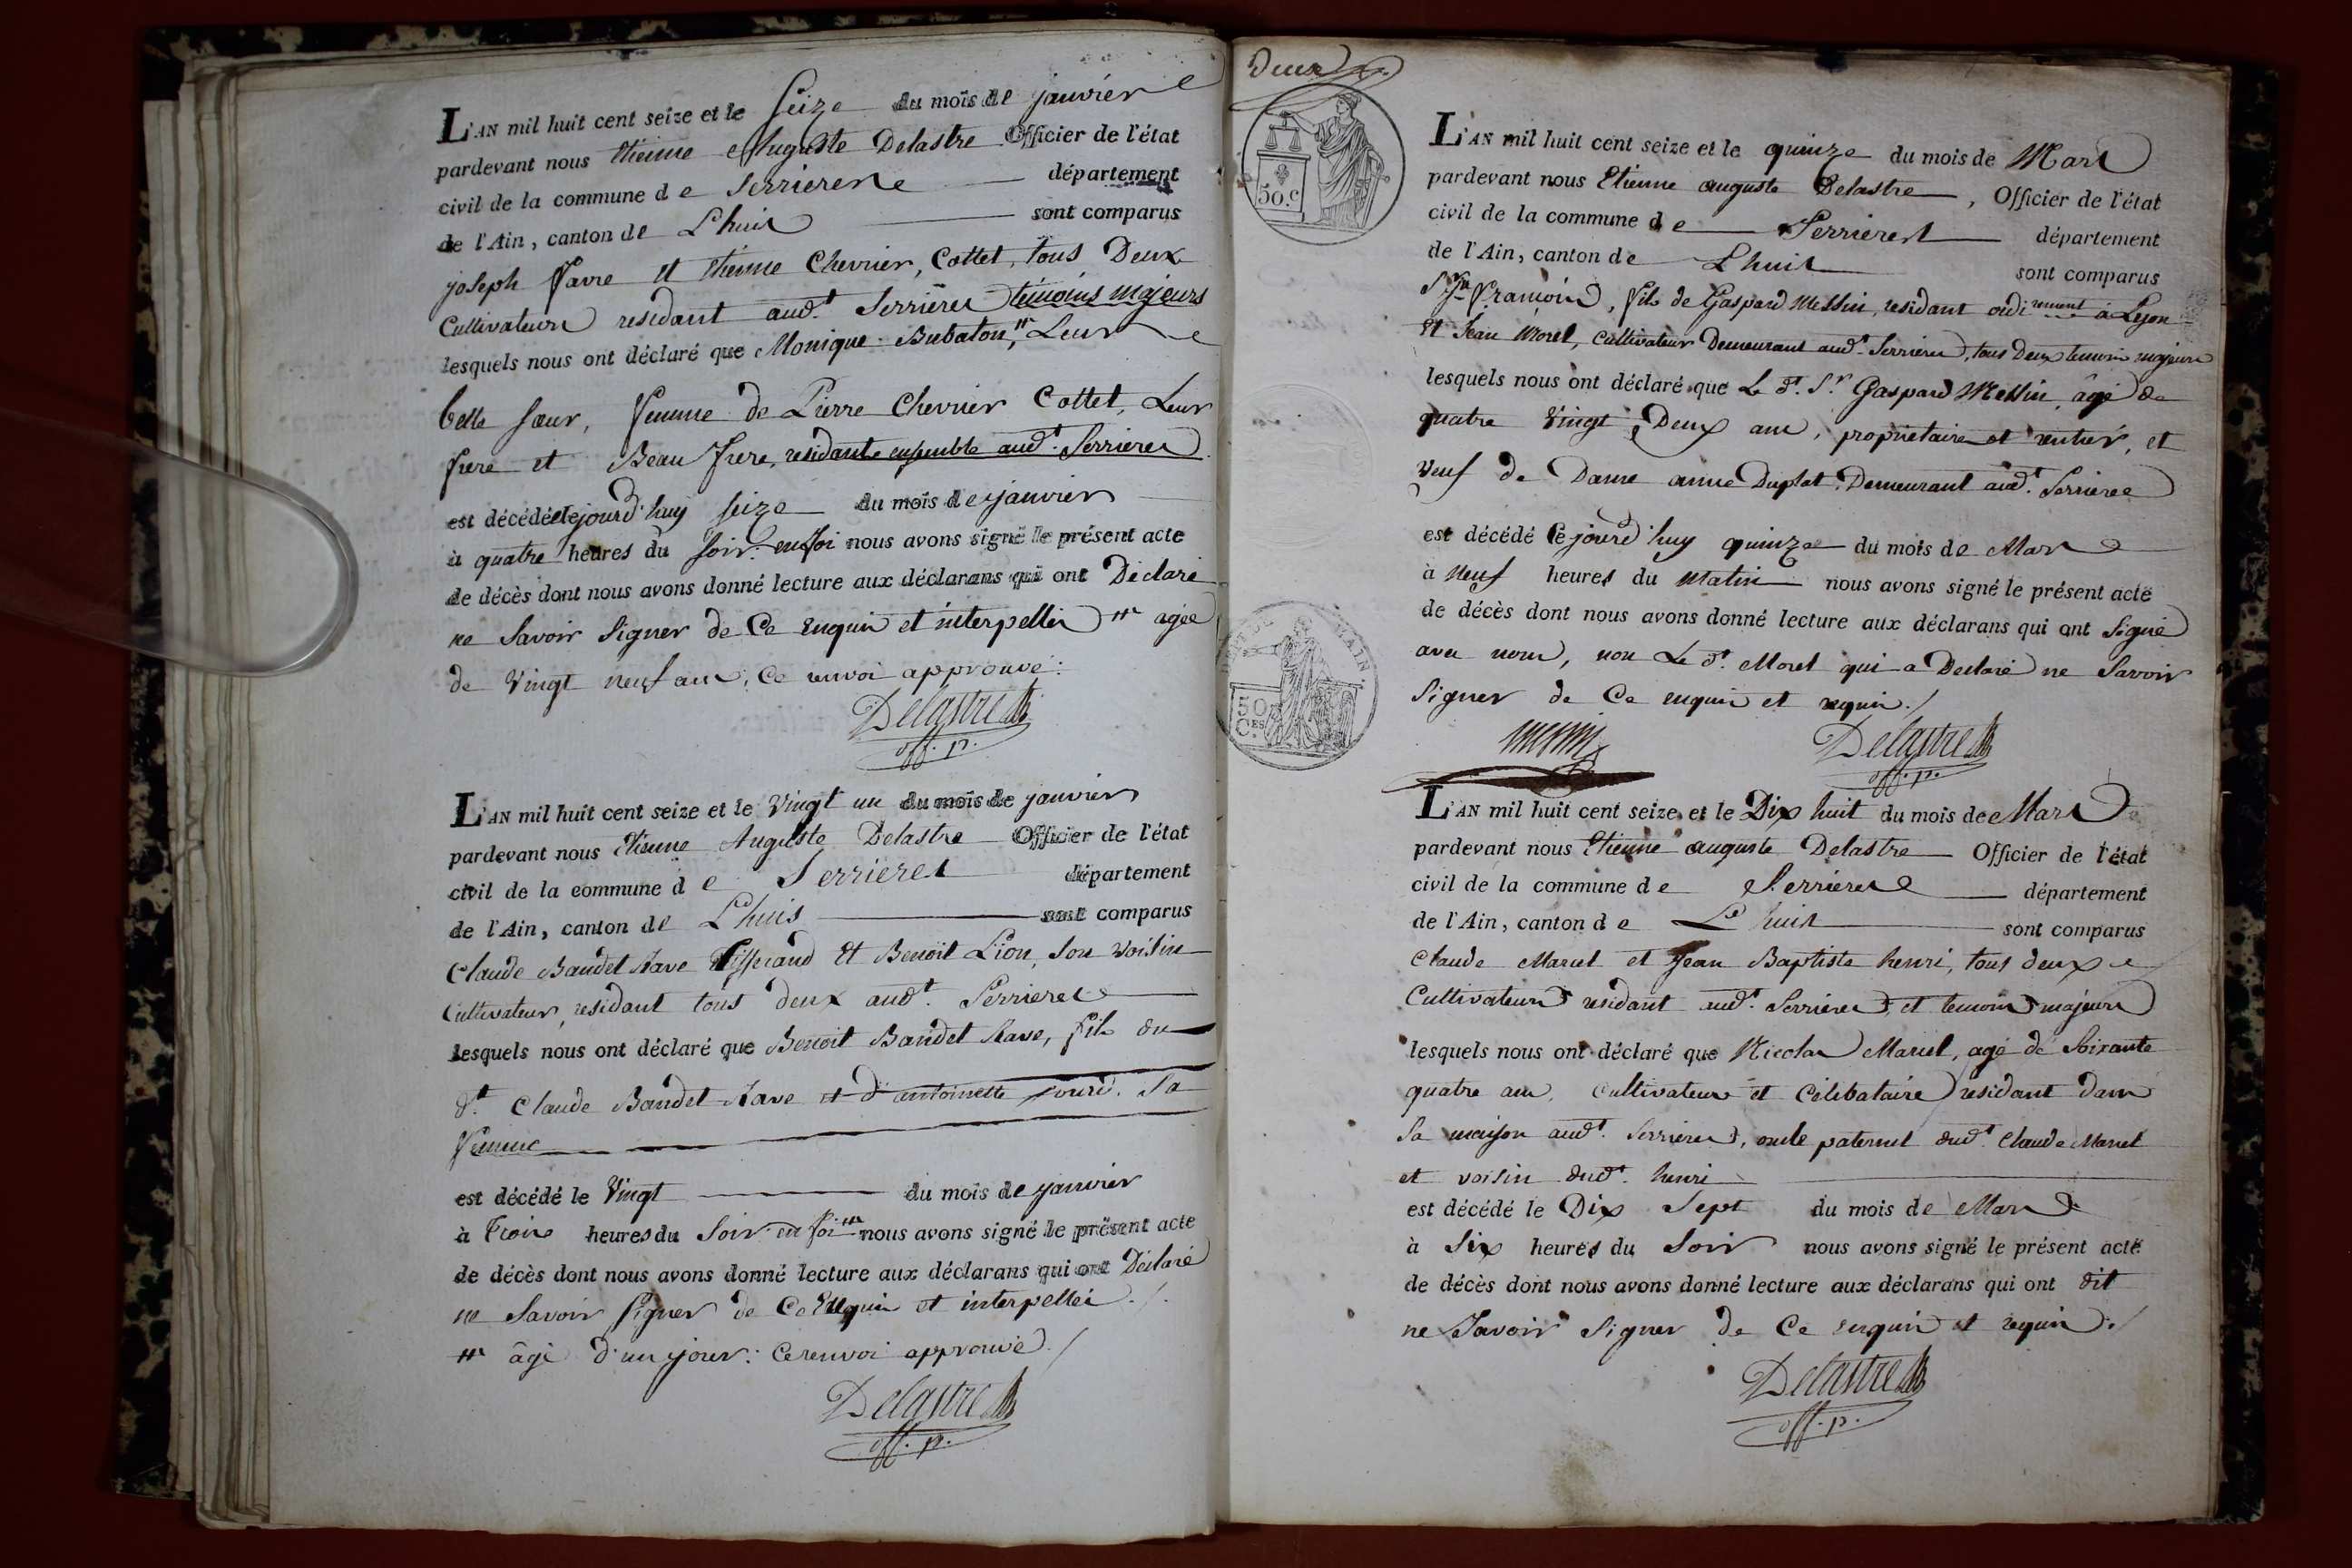 L'AN mil huit cent seize et le Seize du mois de janvier
pardevant nous Etienne Auguste Delastre Officier de l'état
civil de la commune de Serrieres département
de l'Ain, canton de Lhuis sont comparus
joseph Favre et Etienne Chevrier, Cottet, tous Deux
Cultivateurs residant aud.t Serrieres temoins majeurs
lesquels nous ont déclaré que Monique Bubaton, Leur
belle sœur, femme de Pierre Chevrier Cottet, Leur
frere et Beau frere, residants ensemble aud.t Serrieres
est décédée cejourd'huy seize du mois de janvier
à quatre heures du soir. en foi nous avons signé le présent acte
de décès dont nous avons donné lecture aux déclarans qui ont Déclaré
ne Savoir Signer de Ce enquis et interpellés agée
de Vingt neuf ans, ce renvoi approuvé.
Delastre
off. p.
L'AN mil huit cent seize et le Vingt un du mois de janvier
pardevant nous Etienne Auguste Delastre Officier de l'état
civil de la commune de Serrieres département
de l'Ain, canton de Lhuis sont comparus
Claude Baudet Rave Tisserand et Benoit Lion, son voisin
Cultivateur, residant tous deux aud.t Serrieres
lesquels nous ont déclaré que Benoit Baudet Rave, fils du
d.t Claude Baudet Rave et d'antoinette sa
femme
est décédé le Vingt du mois de janvier
à trois heures du Soir en foi nous avons signé le présent acte
de décès dont nous avons donné lecture aux déclarans qui ont Déclaré
ne Savoir signer de Ce Enquis et interpellés ./.
âgé d'un jour: Ce renvoi approuvé ./
Delastre
off. p.
Deux
50.c
50 CES.
L'AN mil huit cent seize et le quinze du mois de Mars
pardevant nous Etienne auguste Delastre, Officier de l'état
civil de la commune de Serrieres département
de l'Ain, canton de Lhuis sont comparus
François, fils de Gaspard Messin, residant ordinrement à Lyon
et Jean Morel, Cultivateur Demeurant aud.t Serrieres, tous deux temoins majeurs
lesquels nous ont déclaré que Le d.t S.r Gaspard Messin, âgé de
quatre Vingt Deux ans, proprietaire et rentier, et
Veuf de Dame anne Duplat, Demeurant aud.t Serrieres
est décédé Cejourd'huy quinze du mois de Mars
à Neuf heures du Matin nous avons signé le présent acte
de décès dont nous avons donné lecture aux déclarans qui ont Signé
avec nous, non Le d.t Morel qui a Declaré ne Savoir
Signer de Ce enquis et requis ./
Messin
Delastre
off. p.
L'AN mil huit cent seize et le Dix huit du mois de Mars
pardevant nous Etienne auguste Delastre Officier de l'état
civil de la commune de Serrieres département
de l'Ain, canton de Lhuis sont comparus
Claude Maruel et Jean Baptiste henri, tous deux
Cultivateurs residant aud.t Serrieres, et temoins majeurs
lesquels nous ont déclaré que Nicolas Maruel, agé de Soixante
quatre ans, Cultivateur et Célibataire residant dans
Sa maison aud.t Serrieres, oncle paternel dud.t Claude Maruel
et voisin dud.t henri
est décédé le Dix Sept du mois de Mars
à Six heures du Soir nous avons signé le présent acte
de décès dont nous avons donné lecture aux déclarans qui ont dit
ne Savoir Signer de Ce enquis et requis ./
Delastre
off. p.